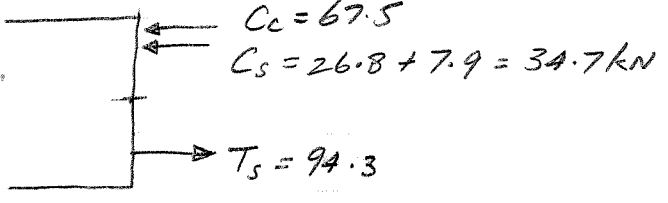 Cc = 67.5
Cs = 26.8 + 7.9 = 34.7 kN
Ts = 94.3